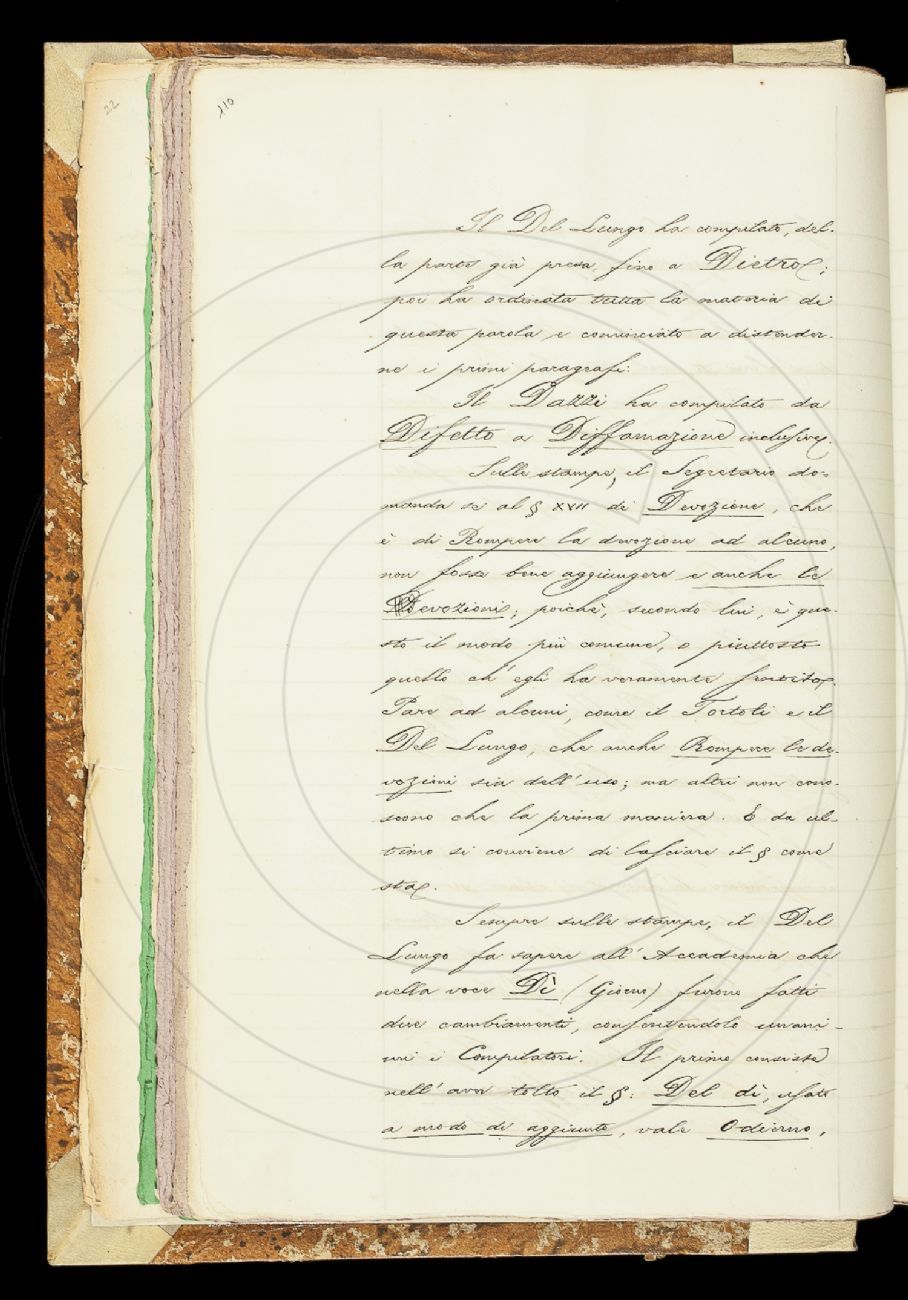 22
110
Il Del Lungo ha compilato, del-
la parte già presa, fino a Dietro;
poi ha ordinata tutta la materia di
questa parola, e cominciato a distender-
ne i primi paragrafi.
Il Dazzi ha compilato da
Difetto a Diffamazione inclusive.
Sulle stampe, il Segretario do-
manda se al § XVII di Devozione, che
è di Rompere la devozione ad alcuno,
non fosse bene aggiungere e anche le
Devozioni; poichè, secondo lui, è que-
sto il modo più comune, o piuttosto
quello ch'egli ha veramente sentito.
Pare ad alcuni, come il Tortoli e il
Del Lungo, che anche Rompere le de-
vozioni sia dell'uso; ma altri non cono-
scono che la prima maniera. E da ul-
timo si conviene di lasciare il § come
sta.
Sempre sulle stampe, il Del
Lungo fa sapere all'Accademia che
nella voce Dì (Giorno) furono fatti
due cambiamenti, consentendolo unani-
mi i Compilatori. Il primo consiste
nell'aver tolto il §: Del dì, usato
a modo di aggiunto, vale Odierno,